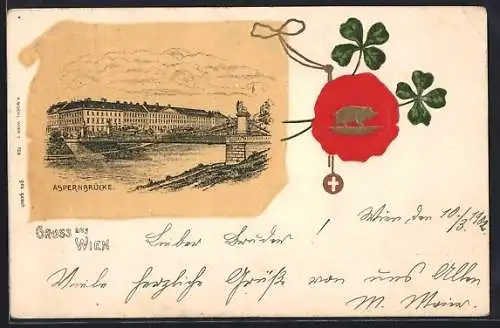 ASPERNBRÜCKE.
GRUSS aus WIEN
Wien den 10./3. 1902
Lieber Bruder !
Viele herzliche Grüße von uns Allen
M. Maier